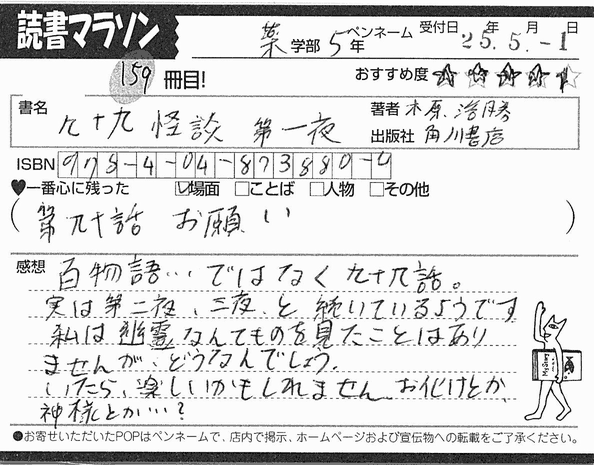 読書マラソン
薬 学部 5年
ペンネーム
受付日 25年 5月 -1日
159 冊目!
おすすめ度
書名 九十九怪談 第一夜
著者 木原浩勝
出版社 角川書店
ISBN 978-4-04-873880-
♥一番心に残った ☑場面 □ことば □人物 □その他
(第九十話 お願い)
感想 百物語…ではなく九十九話。
実は第二夜、三夜、と続いているようです
私は幽霊なんてものを見たことはあり
ませんが、どうなんでしょう。
いたら、楽しいかもしれません。お化けとか
神様とか…?
●お寄せいただいたPOPはペンネームで、店内で掲示、ホームページおよび宣伝物への転載をご了承ください。